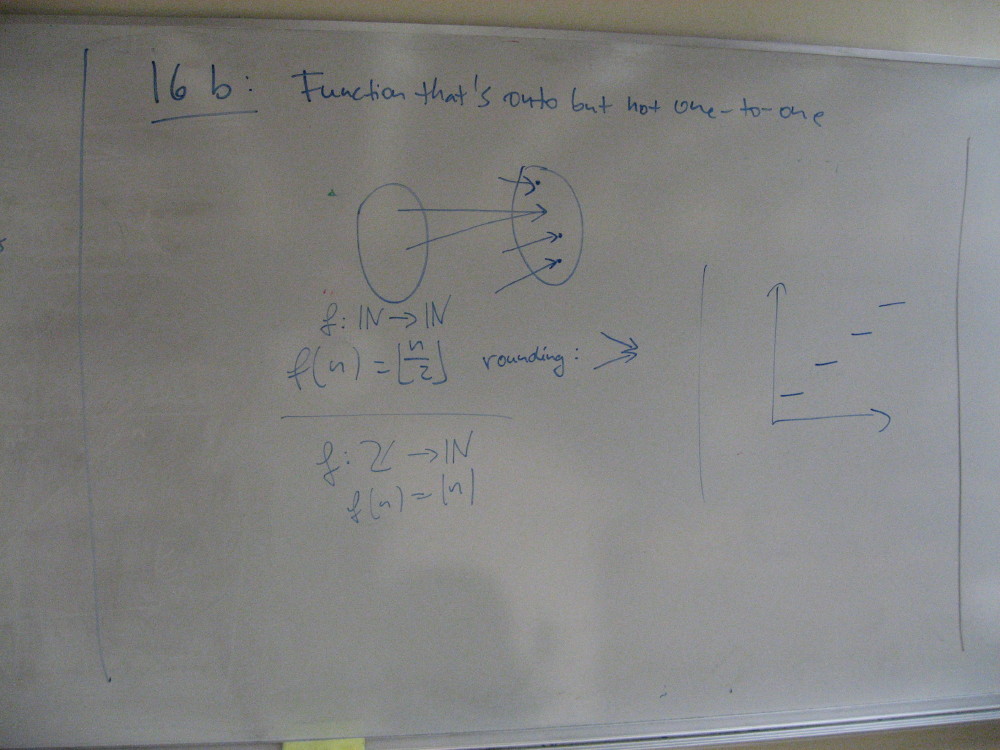 16 b: Function that's onto but not one-to-one
f: ℕ → ℕ
f(n) = ⌊n/2⌋ rounding:
f: ℤ → ℕ
f(n) = |n|